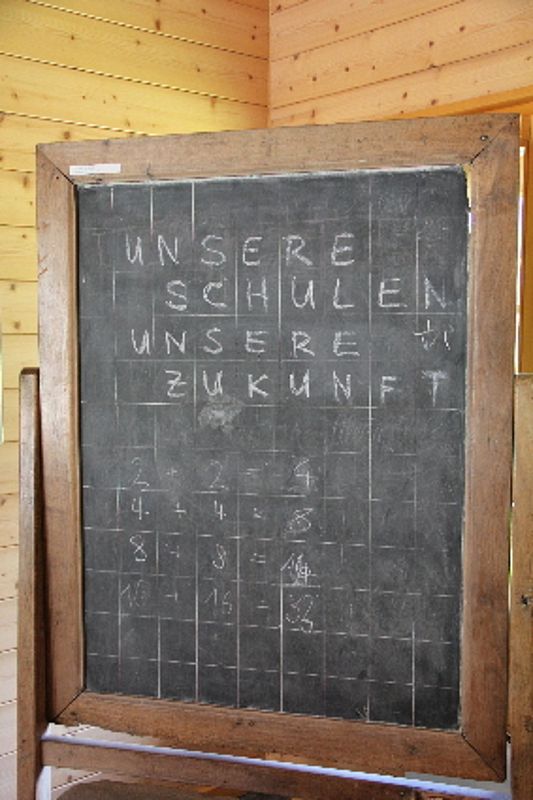 UNSERE
SCHULEN
UNSERE
ZUKUNFT
2 + 2 = 4
4 + 4 = 8
8 + 8 = 16
16 + 16 = 32